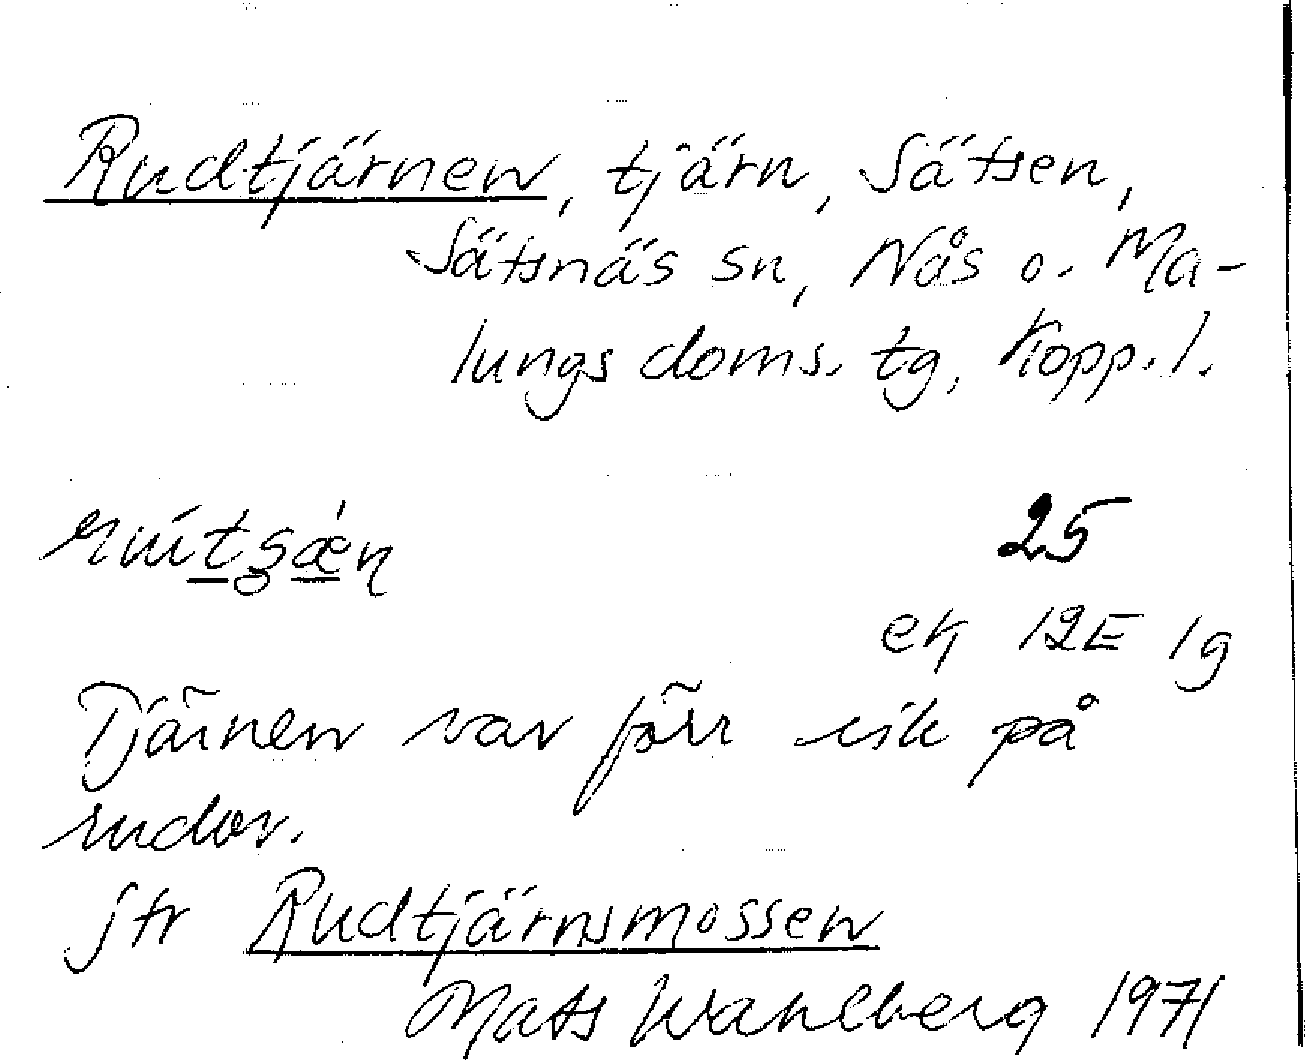 Rudtjärnen, tjärn, Sätsen,
Sätsnäs sn, Nås o. Ma-
lungs doms. tg, Kopp. l.
25
ek 12E 1g
Tjärnen var förr rik på
rudor.
jfr Rudtjärnsmossen
Mats Wahlberg 1971